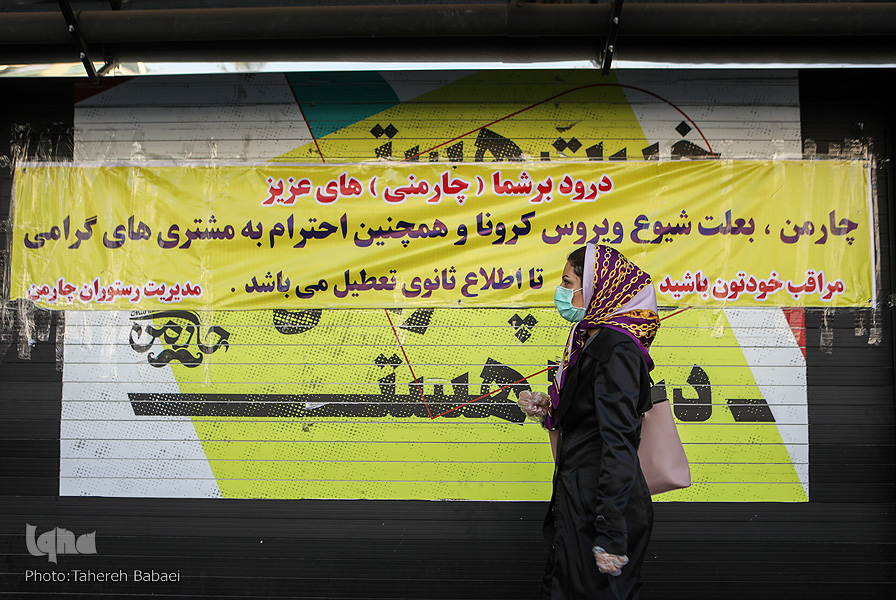 درود برشما ( چارمنی ) های عزیز
چارمن ، بعلت شیوع ویروس کرونا و همچنین احترام به مشتری های گرامی
تا اطلاع ثانوی تعطیل می باشد .
مراقب خودتون باشید
مدیریت رستوران چارمن
چارمن
Iqna
Photo:Tahereh Babaei